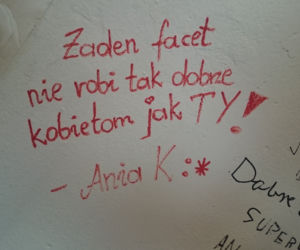 Żaden facet
nie robi tak dobrze
kobietom jak TY!
- Ania K :*
Dabre
SUPER